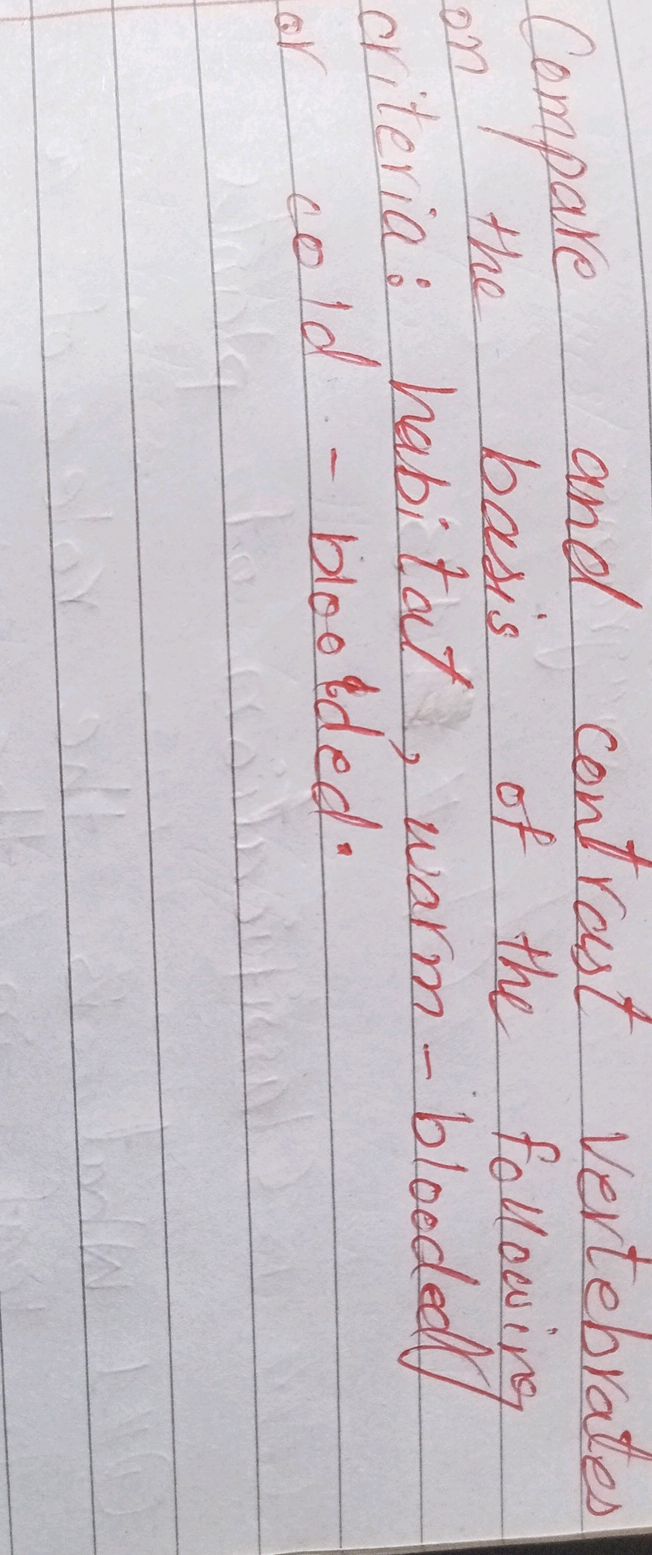 Compare and contrast vertebrates
on the basis of the following
criteria: habitat, warm-blooded/
or cold - blooded.